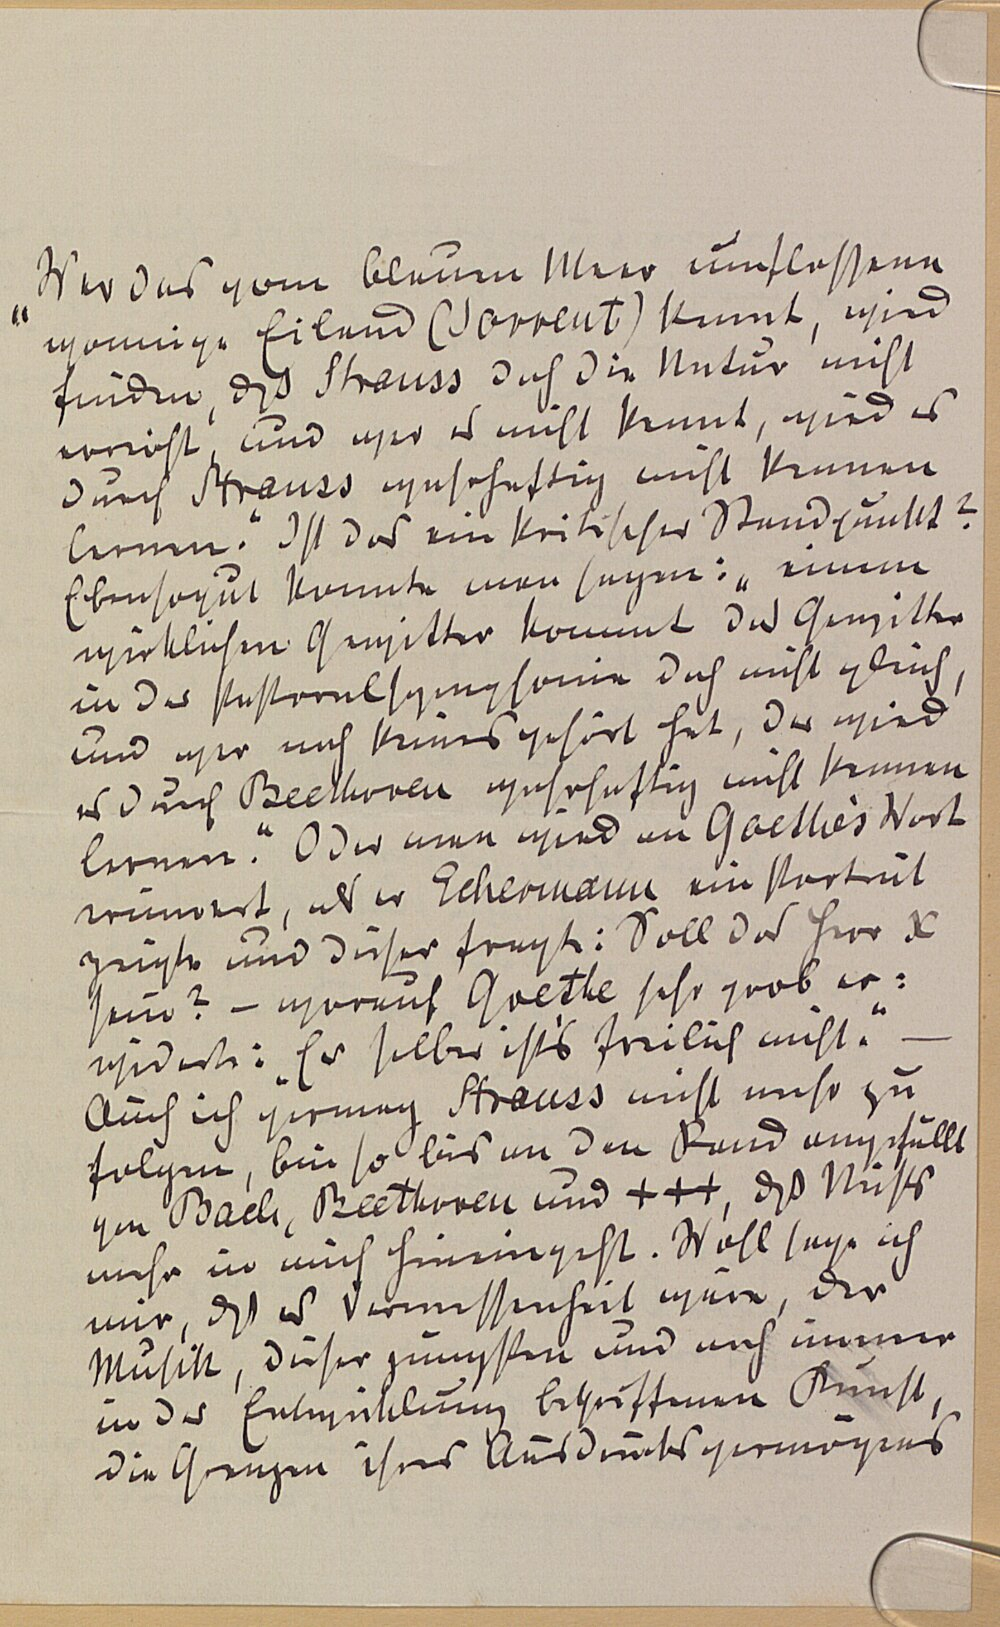 „Wer das vom blauen Meer umflossene
wonnige Eiland (Sorrent) kennt, wird
finden, dß Strauss doch die Natur nicht
erreicht, und wer es nicht kennt, wird es
durch Strauss wahrhaftig nicht kennen
lernen.“ Ist das ein kritischer Standpunkt?
Ebensogut konnte man sagen: „einem
wirklichen Gewitter kommt das Gewitter
in der Pastoralsymphonie doch nicht gleich,
und wer noch keines gehört hat, der wird
es durch Beethoven wahrhaftig nicht kennen
lernen.“ Oder man wird an Goethe's Wort
erinnert, als er Eckermann ein Portrait
zeigte und dieser fragte: Soll das Herr X
sein? – worauf Goethe sehr grob er:
widerte: „Er selber ist's freilich nicht.“ —
Auch ich vermag Strauss nicht mehr zu
folgen, bin so bis an den Rand angefüllt
von Bach, Beethoven und +++, dß Nichts
mehr in mich hineingeht. Wohl sage ich
mir, dß es Vermessenheit wäre, der
Musik, dieser jüngsten und noch immer
in der Entwicklung begriffenen Kunst,
die Grenzen ihres Ausdrucksvermögens